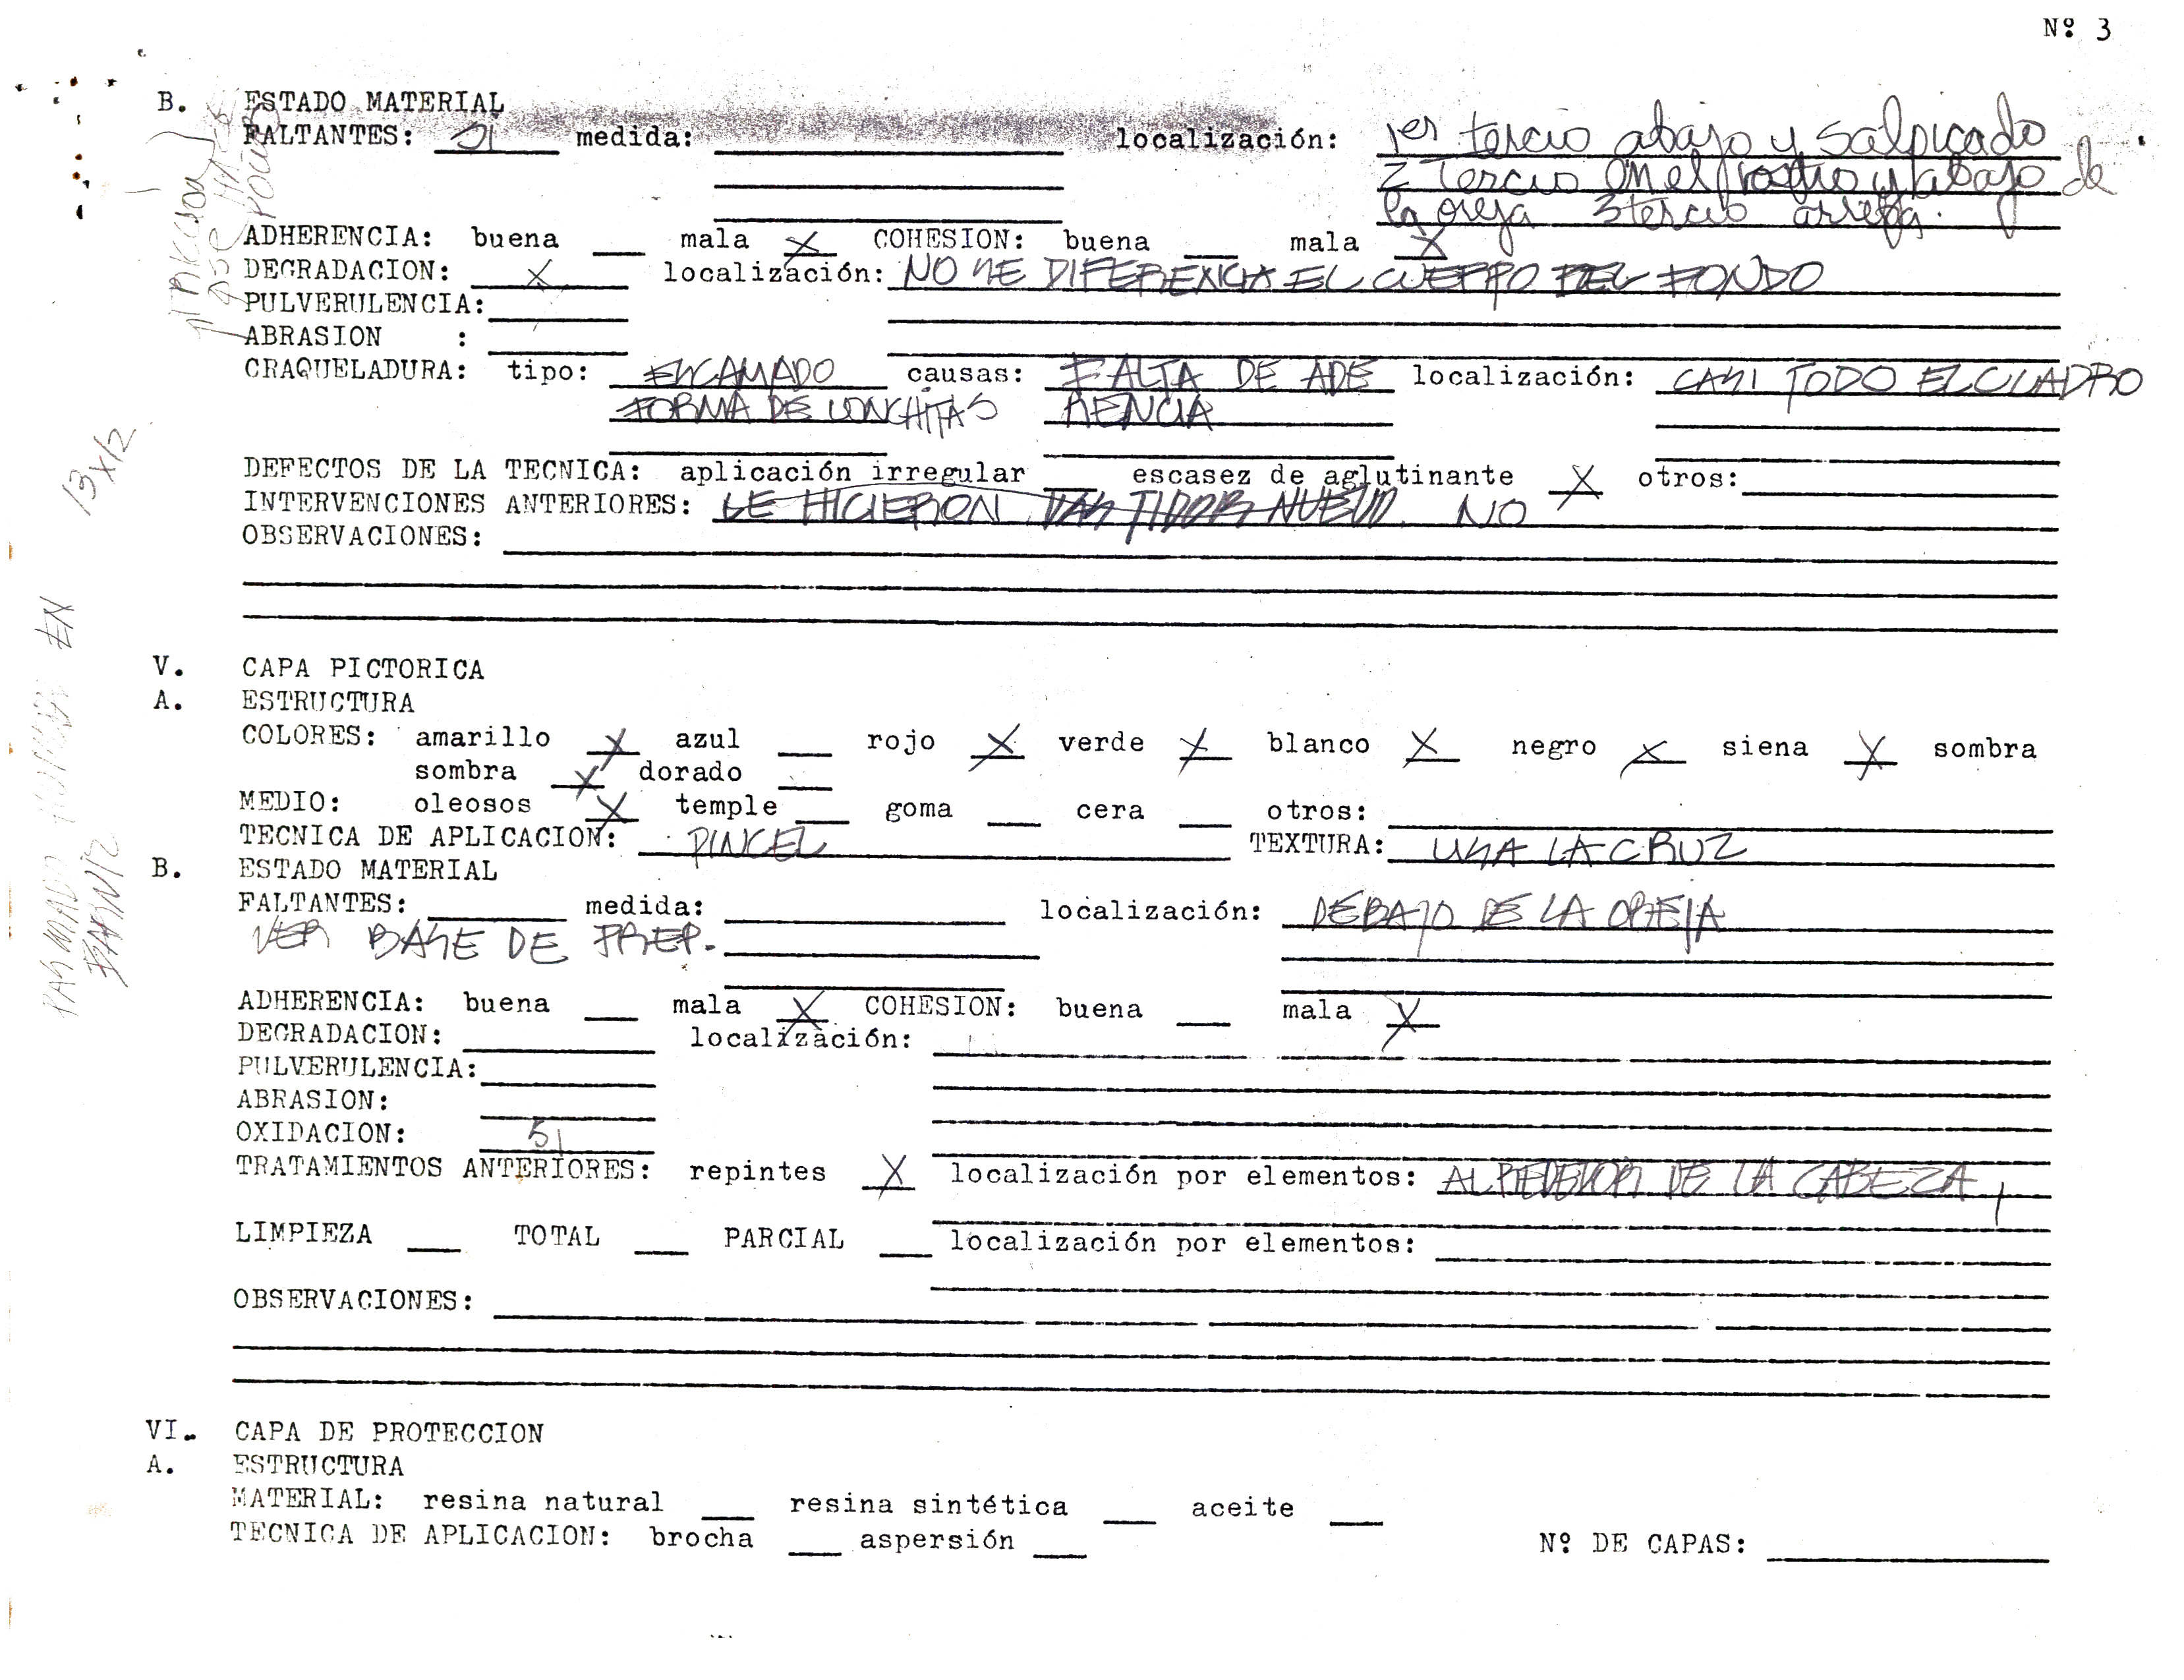 Nº 3
B. ESTADO MATERIAL
FALTANTES: SI medida: localización: 1er tercio abajo y salpicado
2 Tercio en el rostro y abajo de
la oreja 3 tercio arriba.
ADHERENCIA: buena mala X COHESION: buena mala X
DEGRADACION: X localización: NO SE DIFERENCIA EL CUERPO DEL FONDO
PULVERULENCIA:
ABRASION :
CRAQUELADURA: tipo: ESCAMADO causas: FALTA DE ADE localización: CASI TODO EL CUADRO
FORMA DE CONCHITAS RENCIA
DEFECTOS DE LA TECNICA: aplicación irregular escasez de aglutinante X otros:
INTERVENCIONES ANTERIORES: LE HICIERON BASTIDOR NUEVO NO
OBSERVACIONES:
13 x 12
V. CAPA PICTORICA
A. ESTRUCTURA
COLORES: amarillo X azul rojo X verde X blanco X negro X siena X sombra
sombra X dorado
MEDIO: oleosos X temple goma cera otros:
TECNICA DE APLICACION: PINCEL TEXTURA: USA LA CRUZ
B. ESTADO MATERIAL
FALTANTES: medida: localización: DEBAJO DE LA OREJA
VER BASE DE PREP.
ADHERENCIA: buena mala X COHESION: buena mala X
DEGRADACION: localización:
PULVERULENCIA:
ABRASION:
OXIDACION: SI
TRATAMIENTOS ANTERIORES: repintes X localización por elementos: ALREDEDOR DE LA CABEZA
LIMPIEZA TOTAL PARCIAL localización por elementos:
OBSERVACIONES:
VI. CAPA DE PROTECCION
A. ESTRUCTURA
MATERIAL: resina natural resina sintética aceite
TECNICA DE APLICACION: brocha aspersión Nº DE CAPAS: